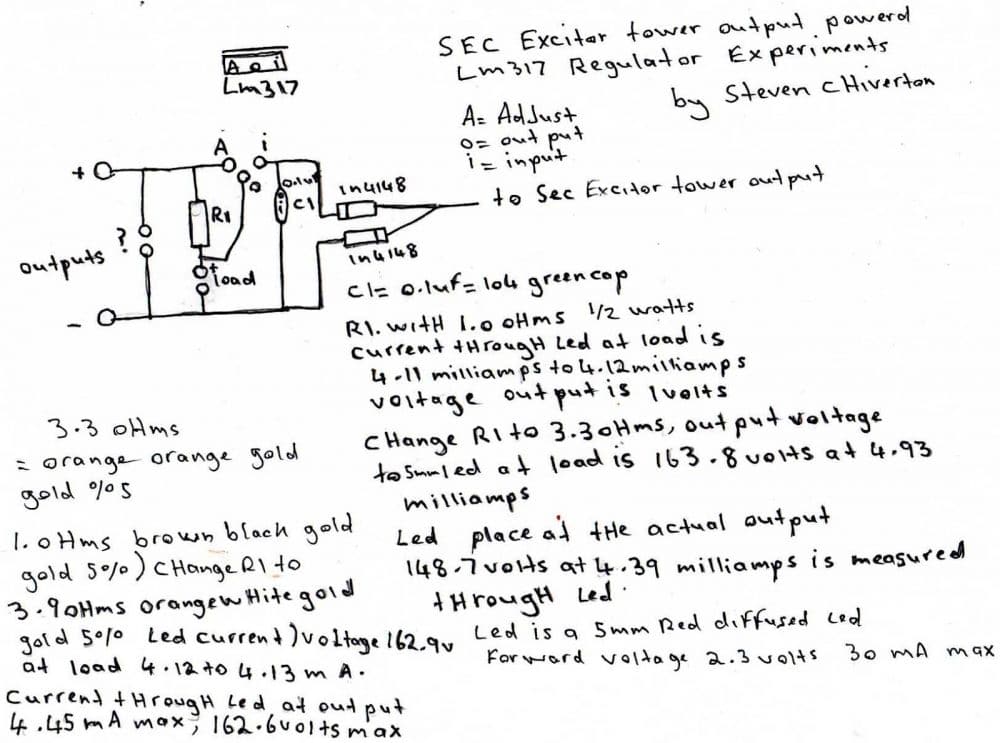 SEC Exciter tower output powerd
Lm317 Regulator Experiments
by Steven cHiverton
A o i
Lm317
A= AdJust
o= out put
i= input
A i
+
o
0.1uf
C1
1n4148
to Sec Exciter tower output
R1
?
outputs
+
load
1n4148
-
C1= 0.1uf= 104 green cap
R1. witH 1.0 oHms 1/2 watts
current tHrougH Led at load is
4-11 milliamps to 4.12 milliamps
voltage out put is 1volts
cHange R1 to 3.3oHms, out put voltage
to 5mm led at load is 163.8 volts at 4.93
milliamps
Led place at tHe actual output
148.7 volts at 4.39 milliamps is measured
tHrougH Led.
Led is a 5mm Red diffused Led
Forward voltage 2.3 volts 30 mA max
3.3 oHms
= orange orange gold
gold %5
1.oHms brown black gold
gold 5%) cHange R1 to
3.9oHms orange wHite gold
gold 5% Led current) voltage 162.9v
at load 4.12 to 4.13 m A.
Current tHrougH Led at out put
4.45 mA max, 162.6volts max